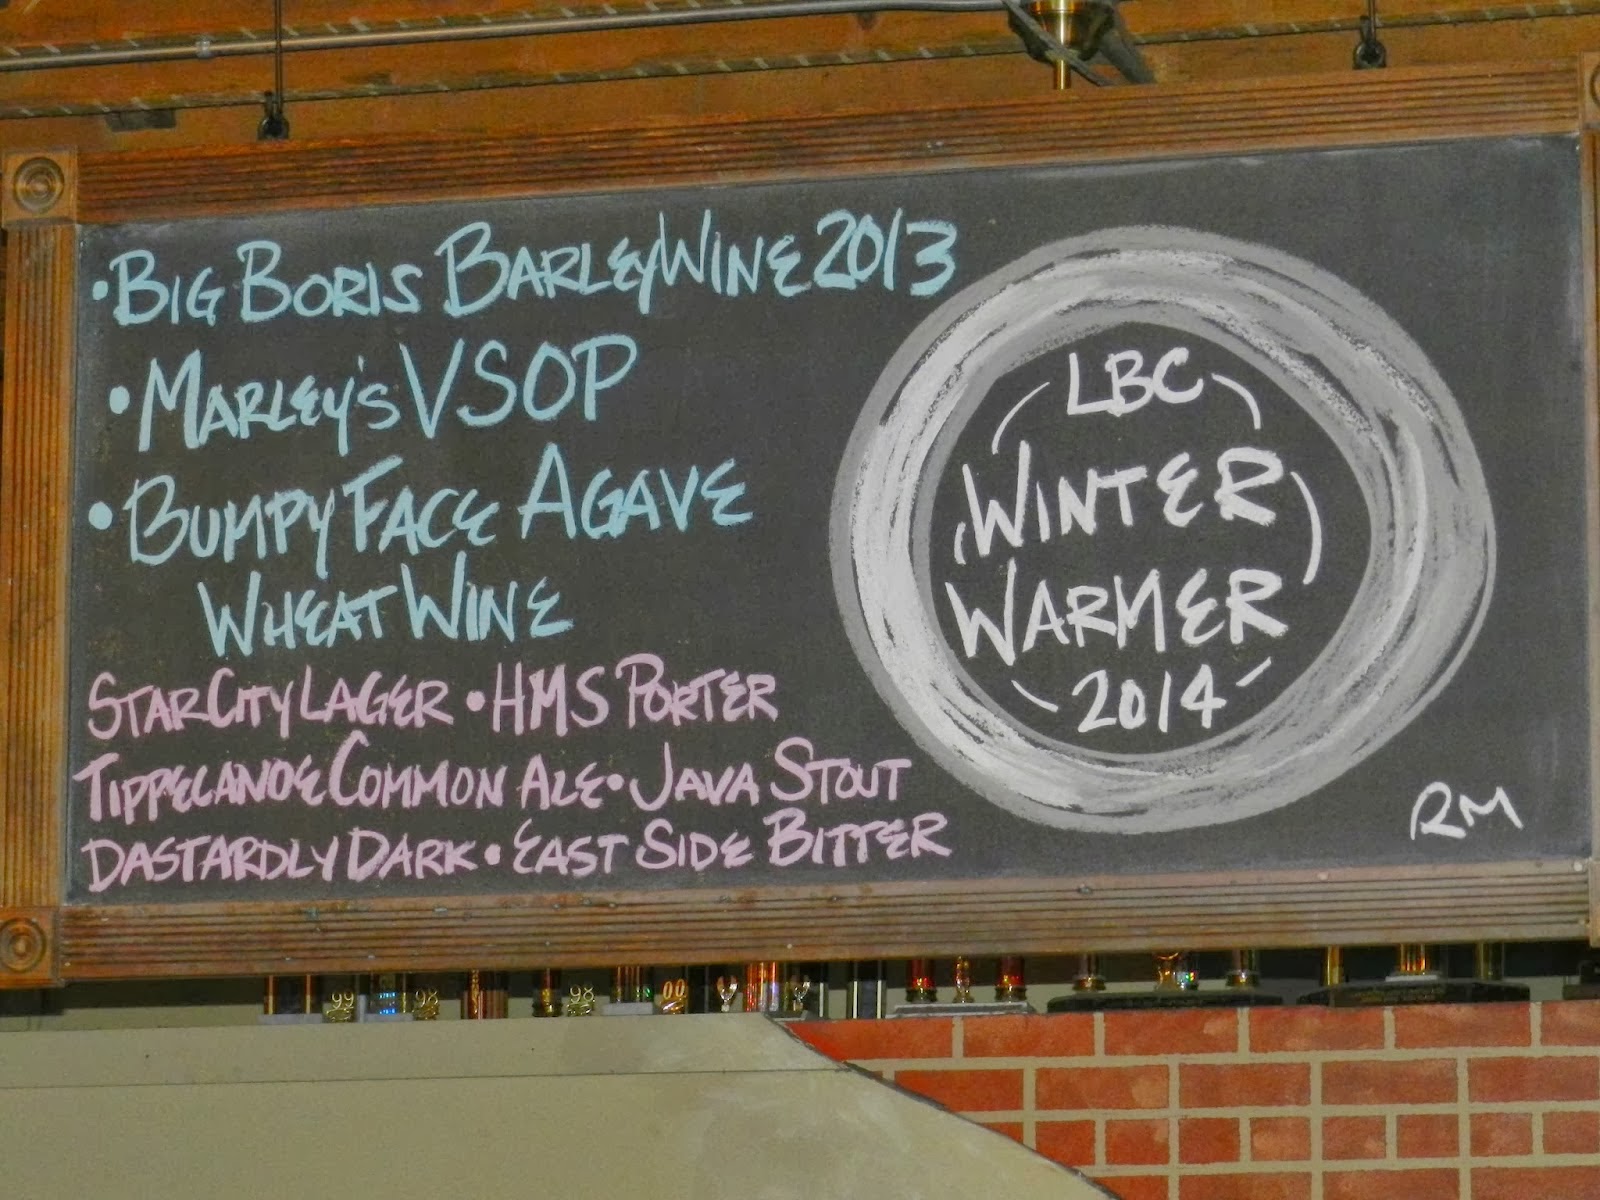 • BIG BORIS BARLEYWINE 2013
• MARLEY'S VSOP
• BUMPY FACE AGAVE
WHEAT WINE
STAR CITY LAGER • HMS PORTER
TIPPECANOE COMMON ALE • JAVA STOUT
DASTARDLY DARK • EAST SIDE BITTER
LBC
WINTER
WARMER
2014
RM
99
98
98
00